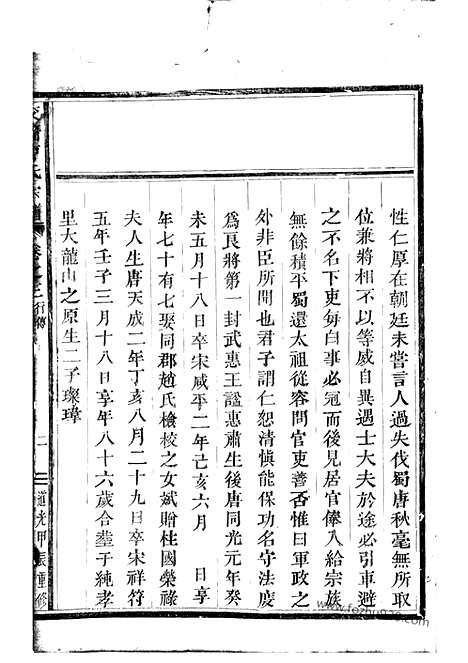 性仁厚在朝廷未嘗言人過失伐蜀唐秋毫無所取
位兼將相不以等威自異遇士大夫於途必引車避
之不名下吏每白事必冠而後見居官俸入給宗族
無餘積平蜀還太祖從容問官吏善否惟曰軍政之
外非臣所聞也君子謂仁恕清慎能保功名守法度
爲良將第一封武惠王謚惠肅生後唐同光元年癸
未五月十八日卒宋咸平二年己亥六月 日享
年七十有七娶同郡趙氏檢校之女斌贈柱國榮祿
夫人生唐天成二年丁亥八月二十九日卒宋祥符
五年壬子三月十八日享年八十六歲合塟于純孝
里大龍山之原生二子璨瑋
氏宗譜 卷之 行傳 二 道光甲辰重修
www.fezhug.com